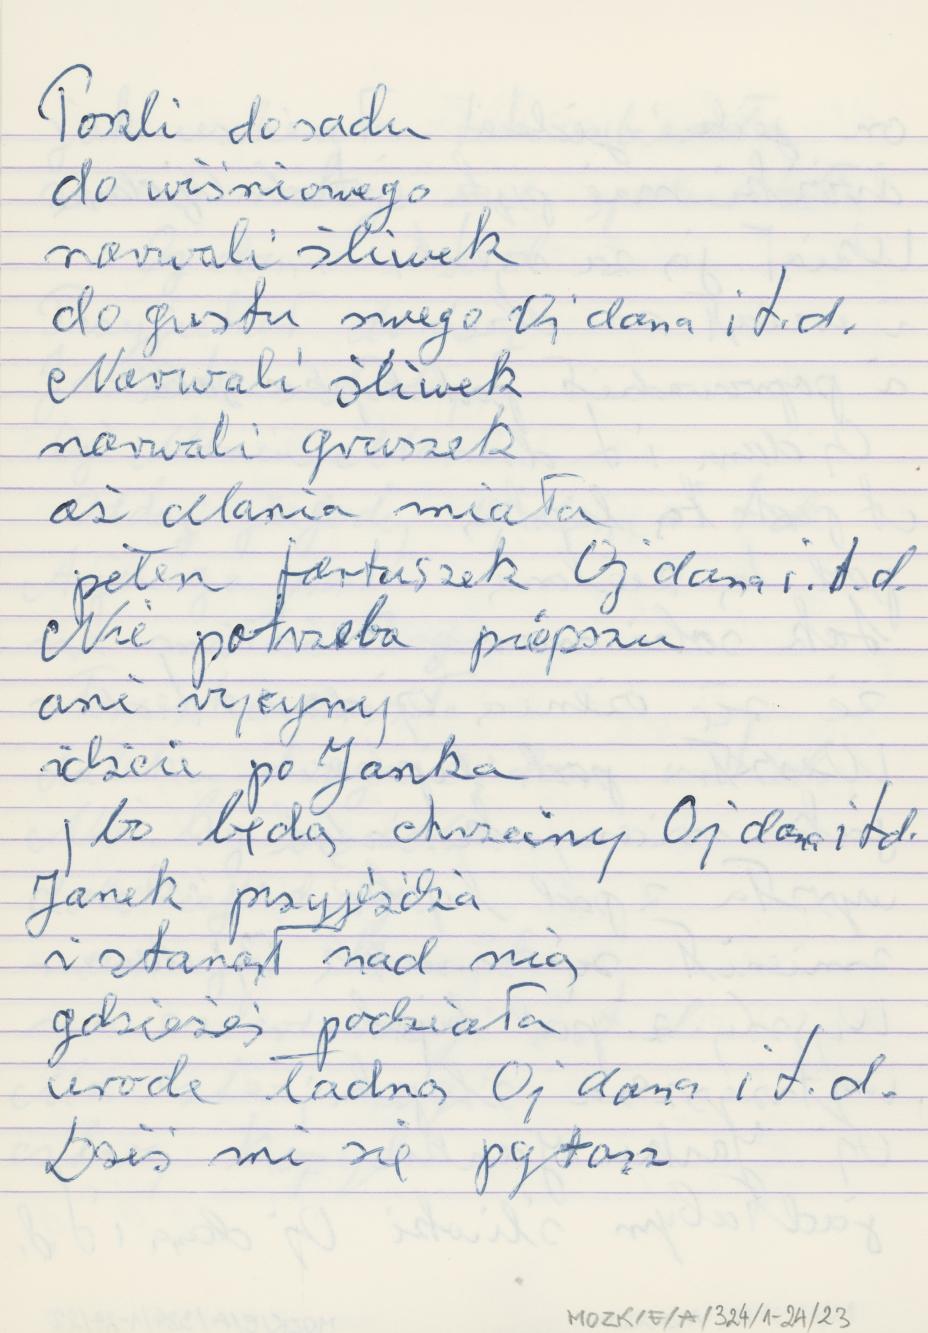 Poszli do sadu
do wiśniowego
narwali śliwek
do gustu swego Oj dana i t.d.
Narwali śliwek
narwali gruszek
aż Mania miała
pełen fartuszek Oj dana i.t.d.
Nie potrzeba pieprzu
ani rycyny
idźcie po Janka
bo będą chrzciny Oj dana i td.
Janek przyjeżdża
i stanął nad nią
gdzieżeś podziała
urodę ładną Oj dana i t.d.
Dziś mi się pytasz
MOZK/E/A/324/1-24/23